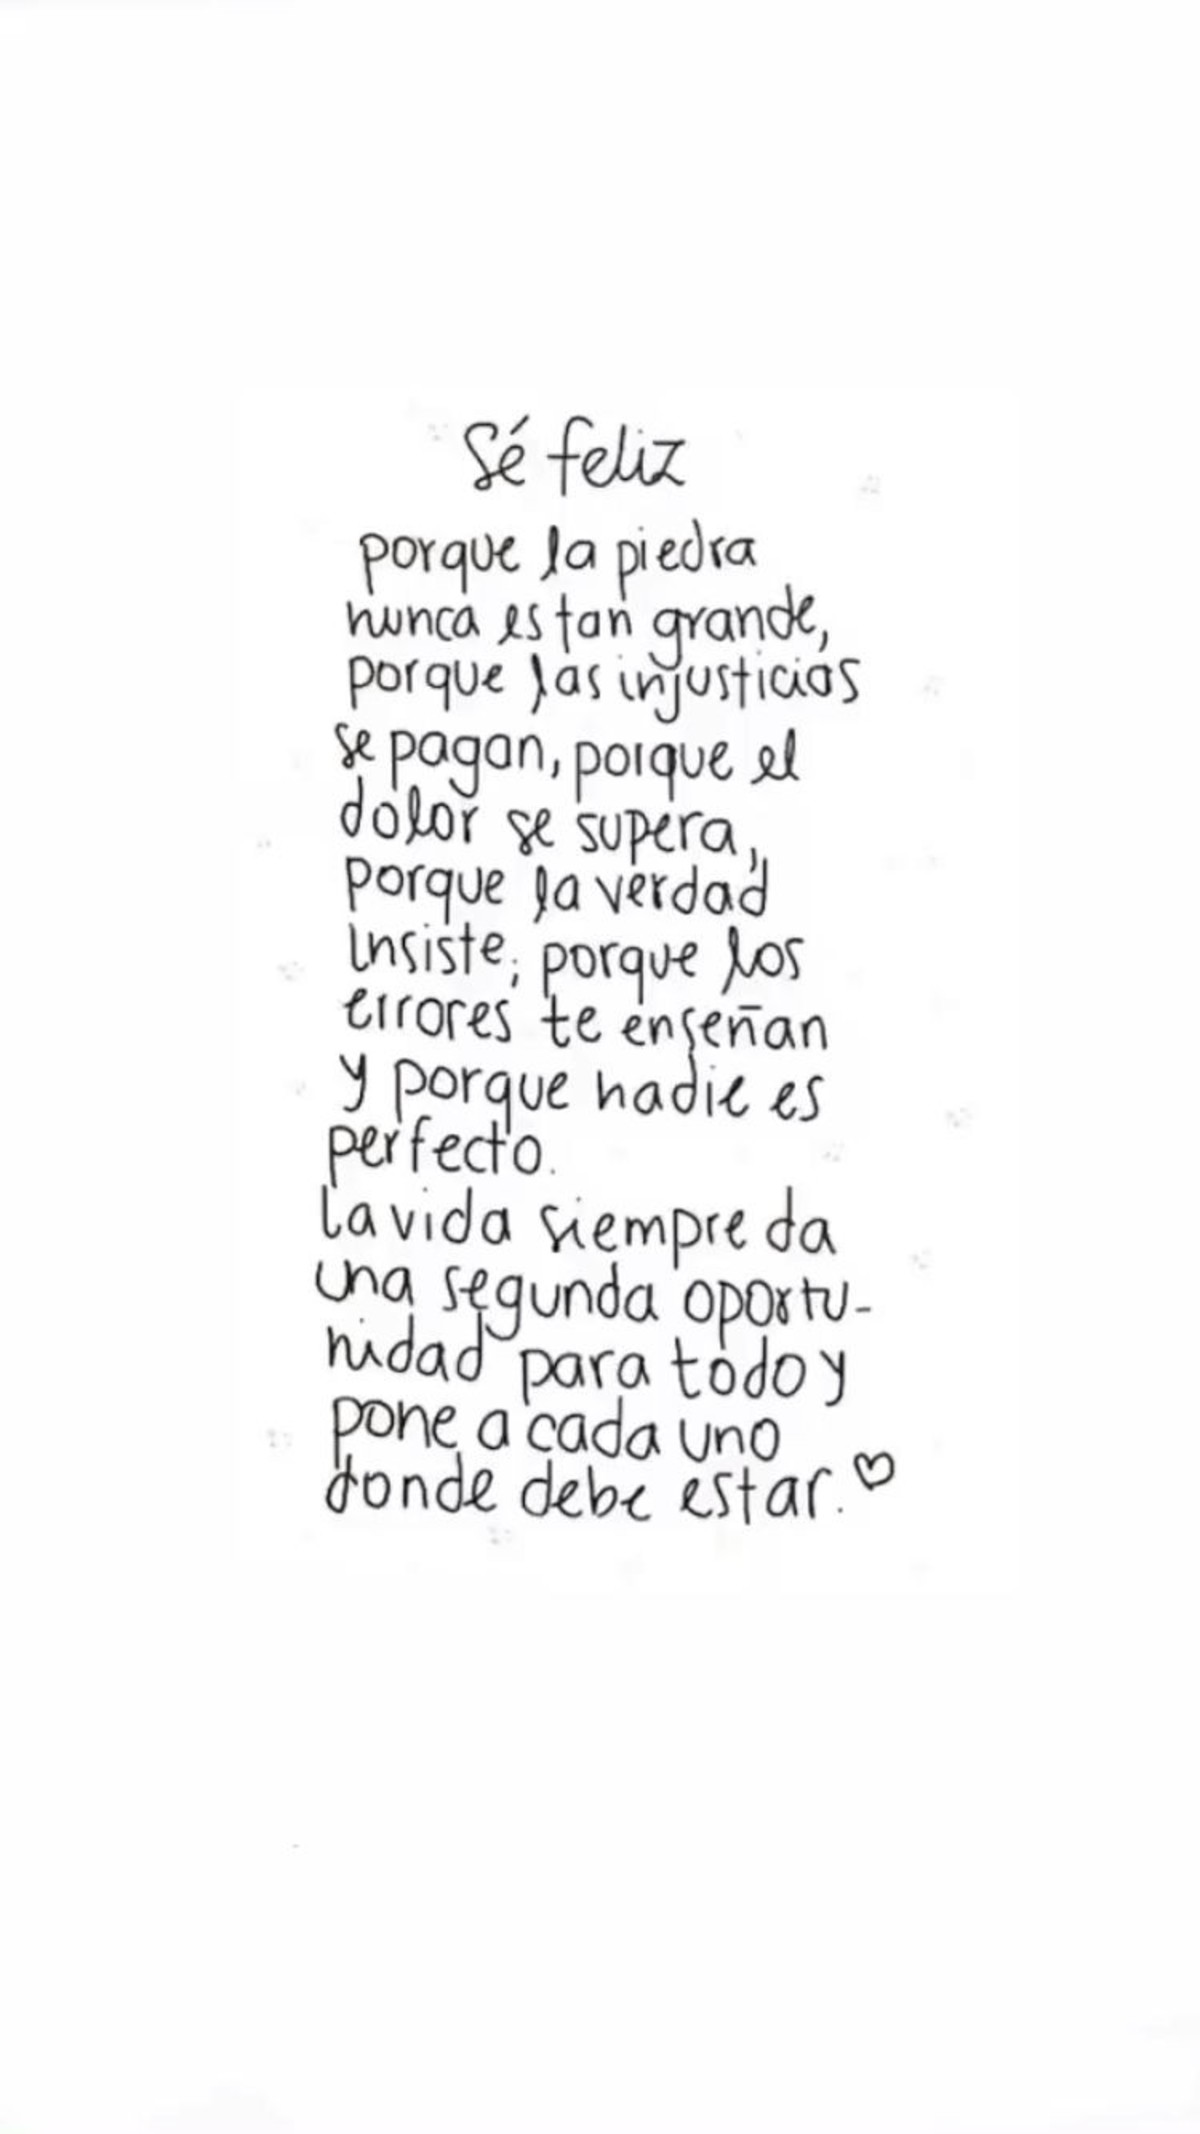 Sé feliz
porque la piedra
nunca es tan grande,
porque las injusticias
se pagan, porque el
dolor se supera,
porque la verdad
insiste, porque los
errores te enseñan
y porque nadie es
perfecto.
La vida siempre da
una segunda oportu-
nidad para todo y
pone a cada uno
donde debe estar.♡